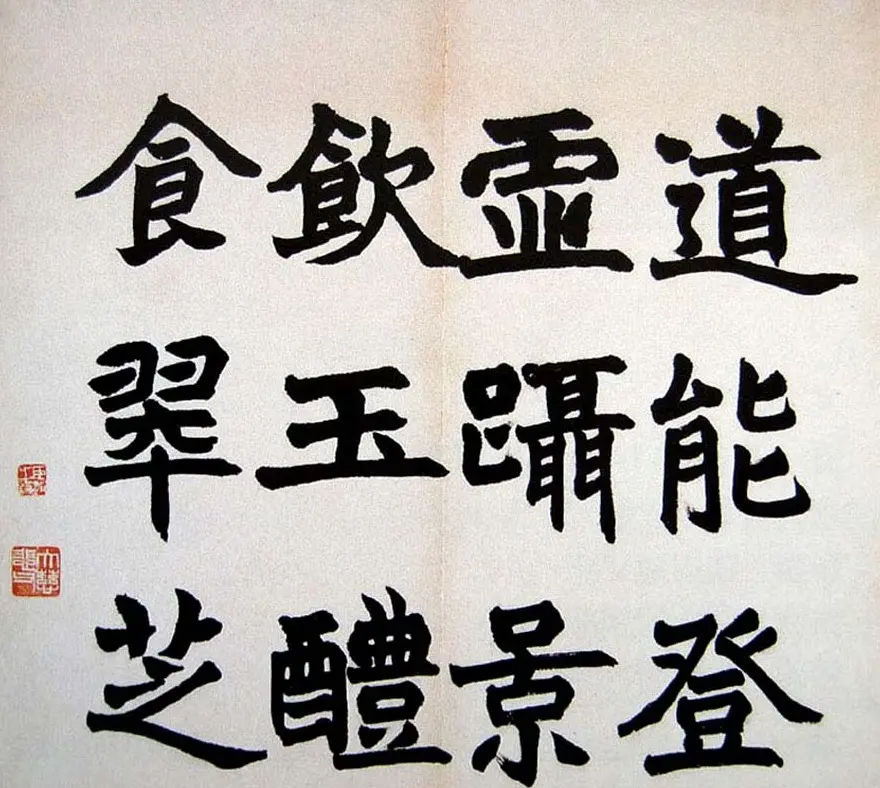 道能登
虛躡景
飲玉醴
食翠芝